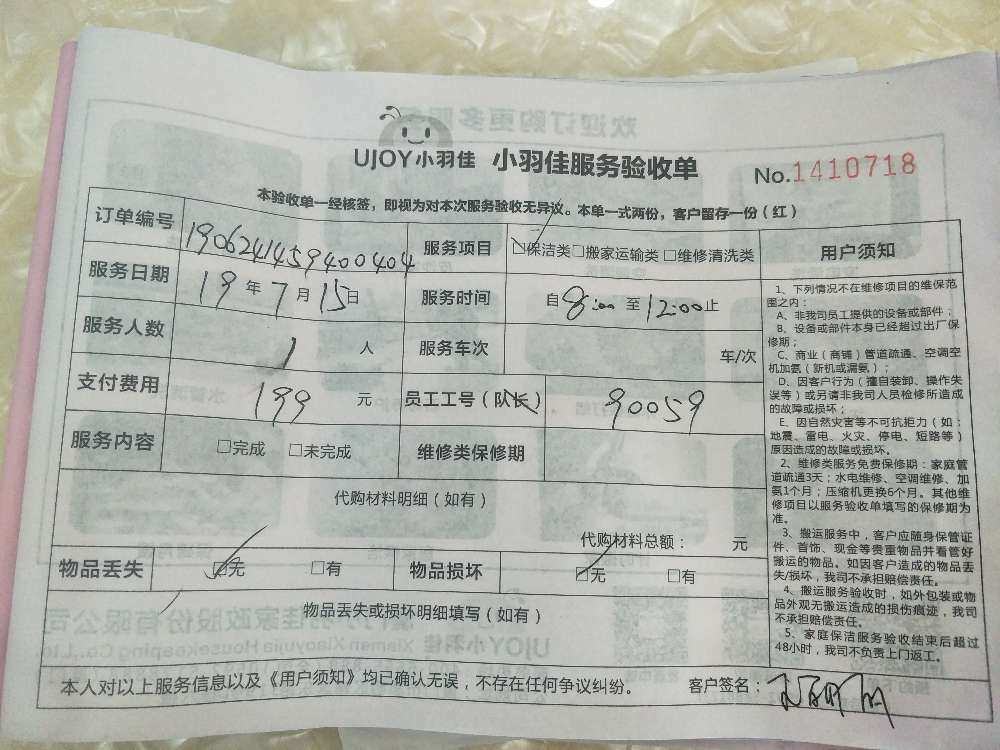 UJOY小羽佳 小羽佳服务验收单
No.1410718
本验收单一经核签，即视为对本次服务验收无异议。本单一式两份，客户留存一份（红）
订单编号 1906241459400404 服务项目 ☑保洁类□搬家运输类□维修清洗类
服务日期 19年7月15日 服务时间 自8:00至12:00止
服务人数 1人 服务车次 车/次
支付费用 199元 员工工号（队长） 90059
服务内容 □完成 □未完成 维修类保修期
代购材料明细（如有）
代购材料总额： 元
物品丢失 ☑无 □有 物品损坏 ☑无 □有
物品丢失或损坏明细填写（如有）
本人对以上服务信息以及《用户须知》均已确认无误，不存在任何争议纠纷。 客户签名：
用户须知
1、下列情况不在维修项目的维保范
围之内：
A、非我司员工提供的设备或部件；
B、设备或部件本身已经超过出厂保
修期；
C、商业（商铺）管道疏通、空调空
机加氨（新机或漏氨）；
D、因客户行为（擅自装卸、操作失
误等）或另请非我司人员检修所造成
的故障或损坏；
E、因自然灾害等不可抗拒力（如：
地震、雷电、火灾、停电、短路等）
原因造成的故障或损坏。
2、维修类服务免费保修期：家庭管
道疏通3天；水电维修、空调维修、加
氨1个月；压缩机更换6个月。其他维
修项目以服务验收单填写的保修期为
准。
3、搬运服务中，客户应随身保管证
件、首饰、现金等贵重物品并看管好
搬运的物品。如因客户造成的物品丢
失/损坏，我司不承担赔偿责任。
4、搬运服务验收时，如外包装或物
品外观无搬运造成的损伤痕迹，我司
不承担赔偿责任。
5、家庭保洁服务验收结束后超过
48小时，我司不负责上门返工。
欢迎订购更多服务
小羽佳家政股份有限公司
Xiamen Xiaoyujia Housekeeping Co.,Ltd.
UJOY小羽佳